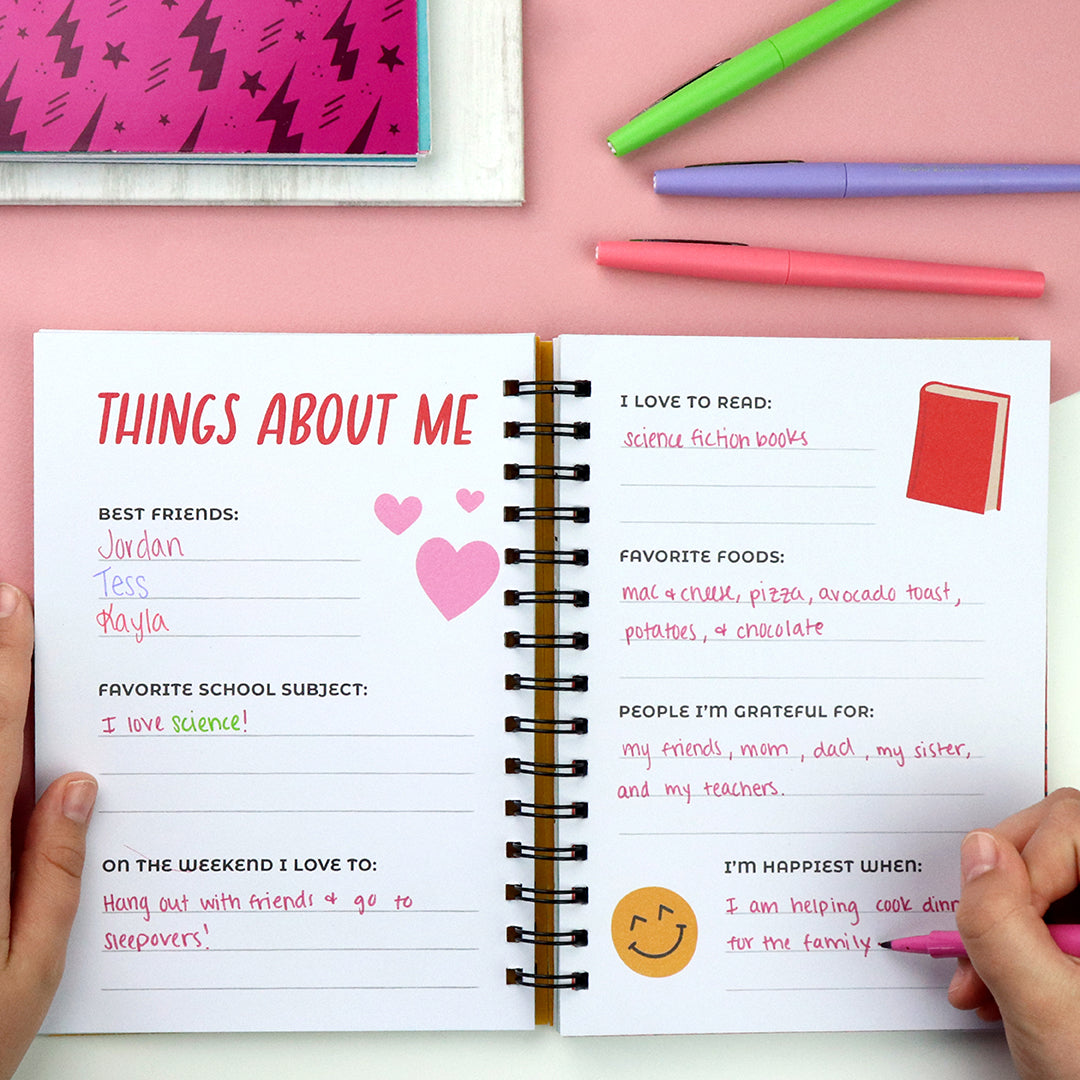 THINGS ABOUT ME
BEST FRIENDS:
Jordan
Tess
Kayla
FAVORITE SCHOOL SUBJECT:
I love science!
ON THE WEEKEND I LOVE TO:
Hang out with friends & go to
sleepovers!
I LOVE TO READ:
science fiction books
FAVORITE FOODS:
mac & cheese, pizza, avocado toast,
potatoes, & chocolate
PEOPLE I'M GRATEFUL FOR:
my friends, mom, dad, my sister,
and my teachers.
I'M HAPPIEST WHEN:
I am helping cook dinn
for the family